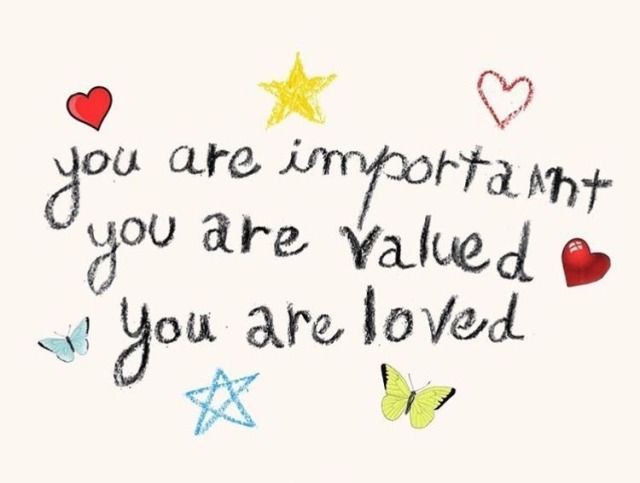 you are important
you are valued
you are loved